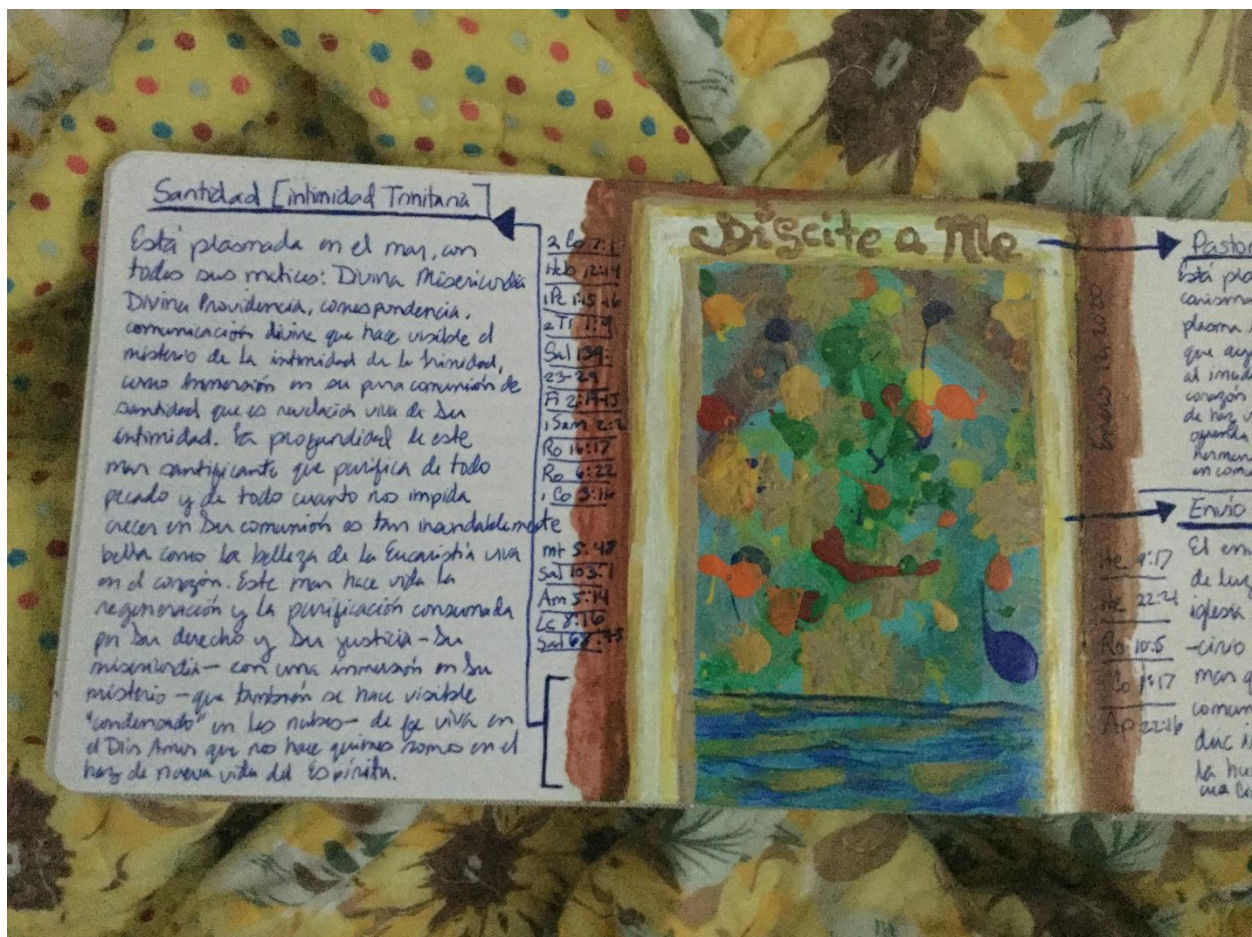 Santidad [intimidad Trinitaria]
Está plasmada en el mar, con
todos sus matices: Divina Misericordia
Divina Providencia, correspondencia,
comunicación divina que hace visible el
misterio de la intimidad de la trinidad,
como inmersión en su pura comunión de
santidad que es revelación viva de Su
intimidad. La profundidad de este
mar santificante que purifica de todo
pecado y de todo cuanto nos impida
crecer en Su comunión es tan insondablemente
bella como la belleza de la Eucaristía viva
en el corazón. Este mar hace vida la
regeneración y la purificación consumada
por Su derecho y Su justicia - Su
misericordia - con una inmersión en Su
misterio - que también se hace visible
"condensado" en las nubes - de fe viva en
el Dios Amor que nos hace quienes somos en el
haz de nueva vida del Espíritu.
2 Co 7:1
Heb 12:14
1 Pe 1:15-16
2 Ti 1:9
Sal 139:
23-24
Fi 2:14-15
1 Sam 2:2
Ro 16:17
Ro 6:22
1 Co 3:16
Mt 5:48
Sal 103:1
Am 5:14
Lc 8:16
Sal 68:
Discite a Me
Enero 12, 2020
Está
carisma
plasma
que
al
corazón
de haz
ofrenda
en
Envío
He 9:17
He 22:21
Ro 10:5
Co 1:17
Ap 22:16
El
de luz
iglesia
mar
duc
la